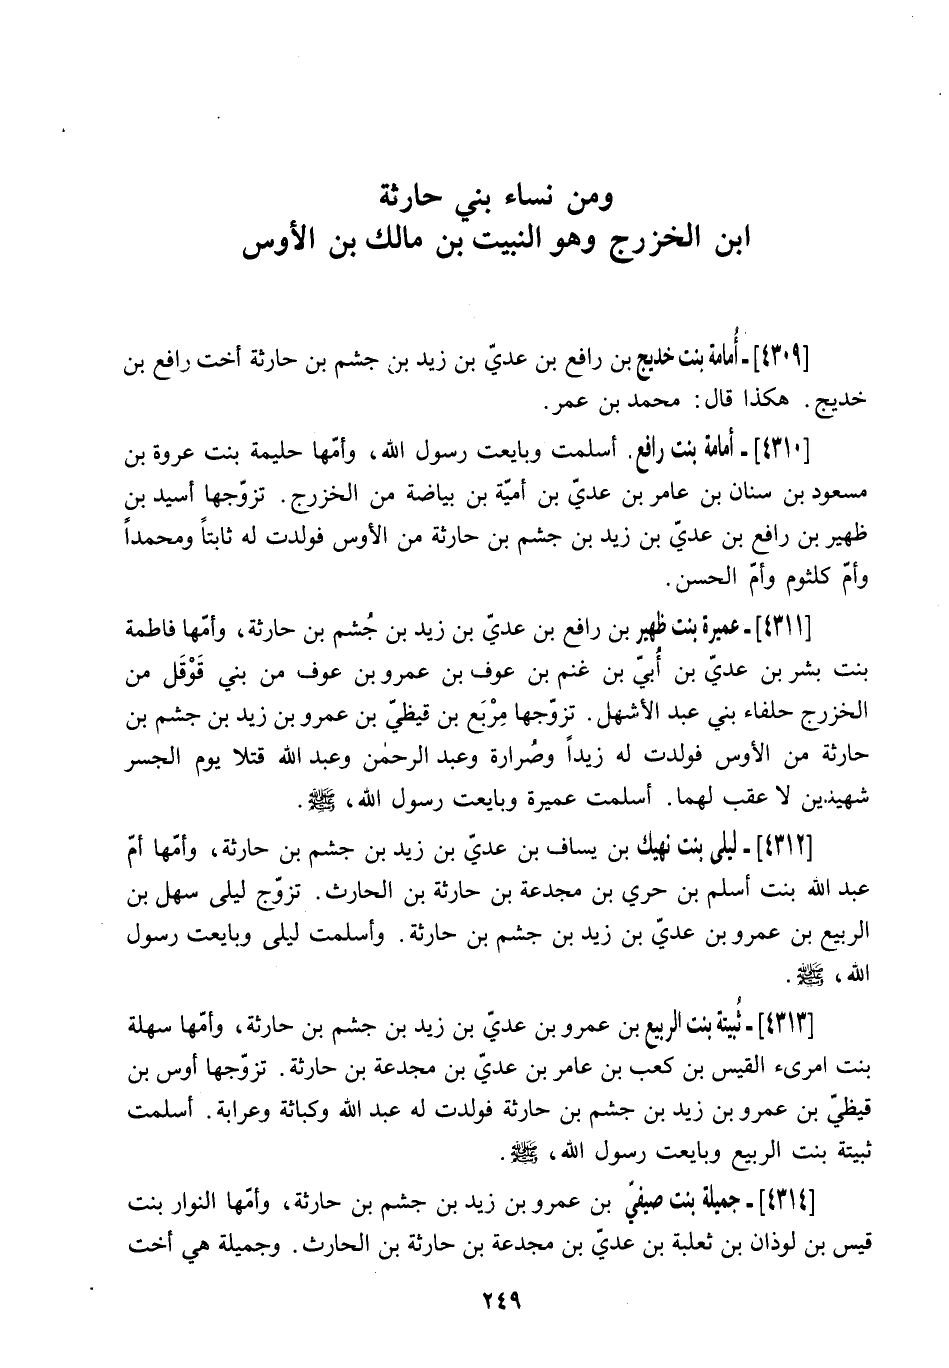 ومن نساء بني حارثة
ابن الخزرج وهو النبيت بن مالك بن الأوس
[٤٣٠٩] ـ أُمامة بنت خديج بن رافع بن عديّ بن زيد بن جشم بن حارثة أخت رافع بن
خديج. هكذا قال: محمد بن عمر.
[٤٣١٠] ـ أمامة بنت رافع. أسلمت وبايعت رسول الله، وأمّها حليمة بنت عروة بن
مسعود بن سنان بن عامر بن عديّ بن أميّة بن بياضة من الخزرج. تزوّجها أسيد بن
ظهير بن رافع بن عديّ بن زيد بن جشم بن حارثة من الأوس فولدت له ثابتاً ومحمداً
وأمّ كلثوم وأمّ الحسن.
[٤٣١١] ـ عميرة بنت ظهير بن رافع بن عديّ بن زيد بن جُشم بن حارثة، وأمّها فاطمة
بنت بشر بن عديّ بن أُبيّ بن غنم بن عوف بن عمرو بن عوف من بني قَوْقَل من
الخزرج حلفاء بني عبد الأشهل. تزوّجها مِرْبَع بن قيظيّ بن عمرو بن زيد بن جشم بن
حارثة من الأوس فولدت له زيداً وصُرارة وعبد الرحمٰن وعبد الله قتلا يوم الجسر
شهيدين لا عقب لهما. أسلمت عميرة وبايعت رسول الله، ﷺ.
[٤٣١٢] ـ ليلى بنت نهيك بن يساف بن عديّ بن زيد بن جشم بن حارثة، وأمّها أمّ
عبد الله بنت أسلم بن حري بن مجدعة بن حارثة بن الحارث. تزوّج ليلى سهل بن
الربيع بن عمرو بن عديّ بن زيد بن جشم بن حارثة. وأسلمت ليلى وبايعت رسول
الله، ﷺ.
[٤٣١٣] ـ ثُبيتة بنت الربيع بن عمرو بن عديّ بن زيد بن جشم بن حارثة، وأمّها سهلة
بنت امرىء القيس بن كعب بن عامر بن عديّ بن مجدعة بن حارثة. تزوّجها أوس بن
قيظيّ بن عمرو بن زيد بن جشم بن حارثة فولدت له عبد الله وكباثة وعرابة. أسلمت
ثبيتة بنت الربيع وبايعت رسول الله، ﷺ.
[٤٣١٤] ـ جميلة بنت صيفيّ بن عمرو بن زيد بن جشم بن حارثة، وأمّها النوار بنت
قيس بن لوذان بن ثعلبة بن عديّ بن مجدعة بن حارثة بن الحارث. وجميلة هي أخت
٢٤٩